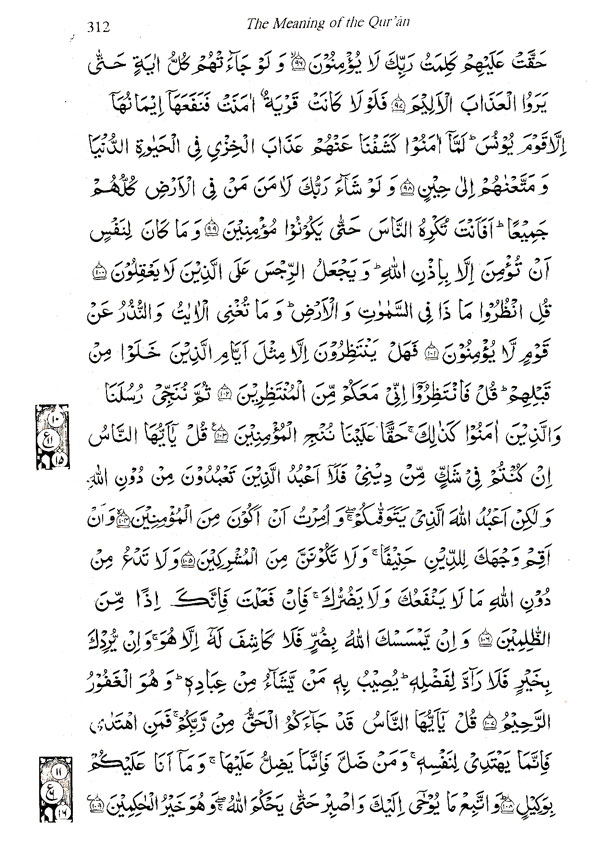 312
The Meaning of the Qur'ān
حَقَّتْ عَلَيْهِمْ كَلِمَتُ رَبِّكَ لَا يُؤْمِنُوْنَ ۝٩٦ وَ لَوْ جَآءَتْهُمْ كُلُّ اٰيَةٍ حَتّٰى
يَرَوُا الْعَذَابَ الْاَلِيْمَ ۝٩٧ فَلَوْلَا كَانَتْ قَرْيَةٌ اٰمَنَتْ فَنَفَعَهَاۤ اِيْمَانُهَاۤ
اِلَّا قَوْمَ يُوْنُسَ ؕ لَمَّاۤ اٰمَنُوْا كَشَفْنَا عَنْهُمْ عَذَابَ الْخِزْيِ فِى الْحَيٰوةِ الدُّنْيَا
وَ مَتَّعْنٰهُمْ اِلٰى حِيْنٍ ۝٩٨ وَ لَوْ شَآءَ رَبُّكَ لَاٰمَنَ مَنْ فِى الْاَرْضِ كُلُّهُمْ
جَمِيْعًا ؕ اَفَاَنْتَ تُكْرِهُ النَّاسَ حَتّٰى يَكُوْنُوْا مُؤْمِنِيْنَ ۝٩٩ وَ مَا كَانَ لِنَفْسٍ
اَنْ تُؤْمِنَ اِلَّا بِاِذْنِ اللّٰهِ ؕ وَ يَجْعَلُ الرِّجْسَ عَلَى الَّذِيْنَ لَا يَعْقِلُوْنَ ۝١٠٠
قُلِ انْظُرُوْا مَا ذَا فِى السَّمٰوٰتِ وَ الْاَرْضِ ؕ وَ مَا تُغْنِى الْاٰيٰتُ وَ النُّذُرُ عَنْ
قَوْمٍ لَّا يُؤْمِنُوْنَ ۝١٠١ فَهَلْ يَنْتَظِرُوْنَ اِلَّا مِثْلَ اَيَّامِ الَّذِيْنَ خَلَوْا مِنْ
قَبْلِهِمْ ؕ قُلْ فَانْتَظِرُوْۤا اِنِّىْ مَعَكُمْ مِّنَ الْمُنْتَظِرِيْنَ ۝١٠٢ ثُمَّ نُنَجِّىْ رُسُلَنَا
وَ الَّذِيْنَ اٰمَنُوْا كَذٰلِكَ ۚ حَقًّا عَلَيْنَا نُنْجِ الْمُؤْمِنِيْنَ ۝١٠٣ قُلْ يٰۤاَيُّهَا النَّاسُ
١٠
ع
١١
١٥
اِنْ كُنْتُمْ فِىْ شَكٍّ مِّنْ دِيْنِىْ فَلَاۤ اَعْبُدُ الَّذِيْنَ تَعْبُدُوْنَ مِنْ دُوْنِ اللّٰهِ
وَ لٰكِنْ اَعْبُدُ اللّٰهَ الَّذِىْ يَتَوَفّٰىكُمْ ۖۚ وَ اُمِرْتُ اَنْ اَكُوْنَ مِنَ الْمُؤْمِنِيْنَ ۝١٠٤ وَ اَنْ
اَقِمْ وَجْهَكَ لِلدِّيْنِ حَنِيْفًا ۚ وَ لَا تَكُوْنَنَّ مِنَ الْمُشْرِكِيْنَ ۝١٠٥ وَ لَا تَدْعُ مِنْ
دُوْنِ اللّٰهِ مَا لَا يَنْفَعُكَ وَ لَا يَضُرُّكَ ۚ فَاِنْ فَعَلْتَ فَاِنَّكَ اِذًا مِّنَ
الظّٰلِمِيْنَ ۝١٠٦ وَ اِنْ يَّمْسَسْكَ اللّٰهُ بِضُرٍّ فَلَا كَاشِفَ لَهٗۤ اِلَّا هُوَ ۚ وَ اِنْ يُّرِدْكَ
بِخَيْرٍ فَلَا رَآدَّ لِفَضْلِهٖ ؕ يُصِيْبُ بِهٖ مَنْ يَّشَآءُ مِنْ عِبَادِهٖ ؕ وَ هُوَ الْغَفُوْرُ
الرَّحِيْمُ ۝١٠٧ قُلْ يٰۤاَيُّهَا النَّاسُ قَدْ جَآءَكُمُ الْحَقُّ مِنْ رَّبِّكُمْ ۚ فَمَنِ اهْتَدٰى
فَاِنَّمَا يَهْتَدِىْ لِنَفْسِهٖ ۚ وَ مَنْ ضَلَّ فَاِنَّمَا يَضِلُّ عَلَيْهَا ۚ وَ مَاۤ اَنَا عَلَيْكُمْ
بِوَكِيْلٍ ۝١٠٨ وَ اتَّبِعْ مَا يُوْحٰۤى اِلَيْكَ وَ اصْبِرْ حَتّٰى يَحْكُمَ اللّٰهُ ۖۚ وَ هُوَ خَيْرُ الْحٰكِمِيْنَ ۝١٠٩
١١
ع
١٦